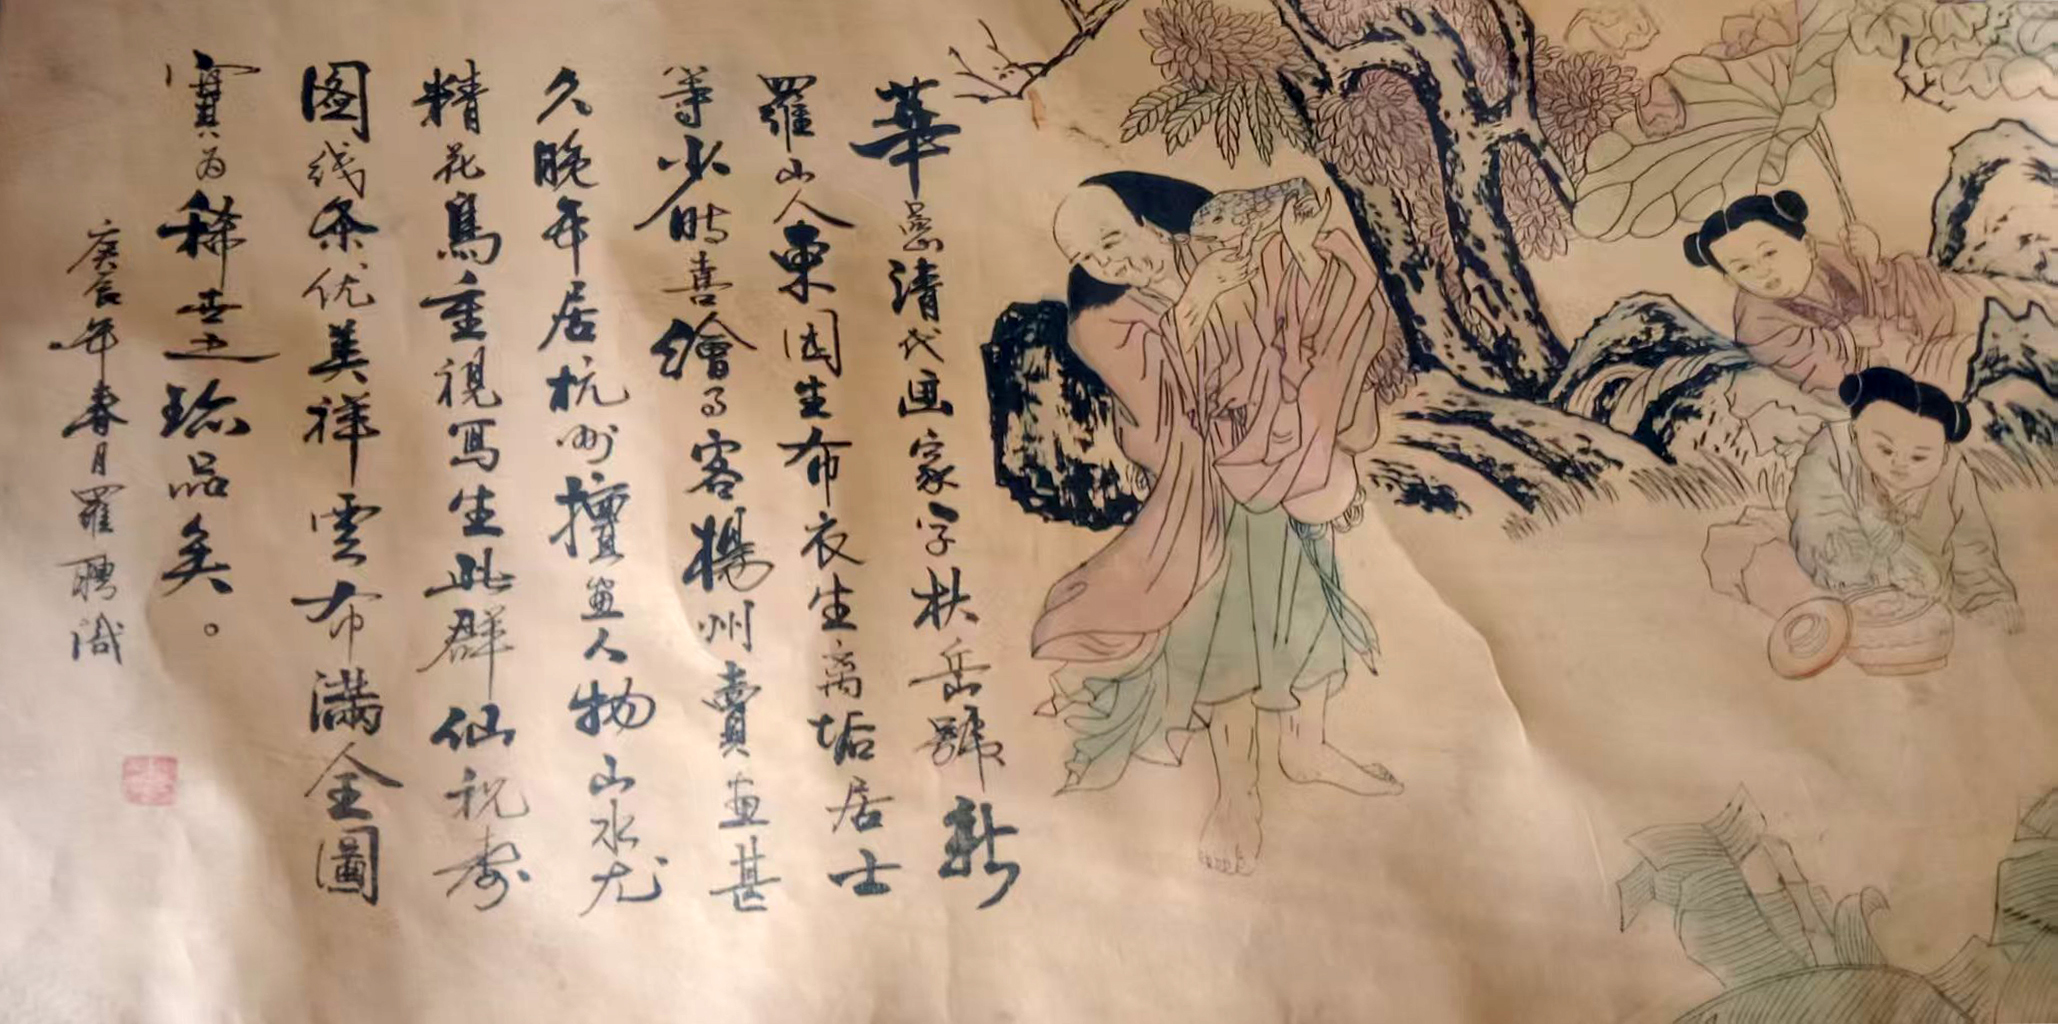 華嵒清代画家字秋岳號新
羅山人東園生布衣生离垢居士
等少時喜繪了客楊州賣畫甚
久晚年居杭州擅畫人物山水尤
精花鳥重視写生此群仙祝寿
图线条优美祥雲布满全圖
實为稀世之珍品矣。
庚合年春月羅聘識